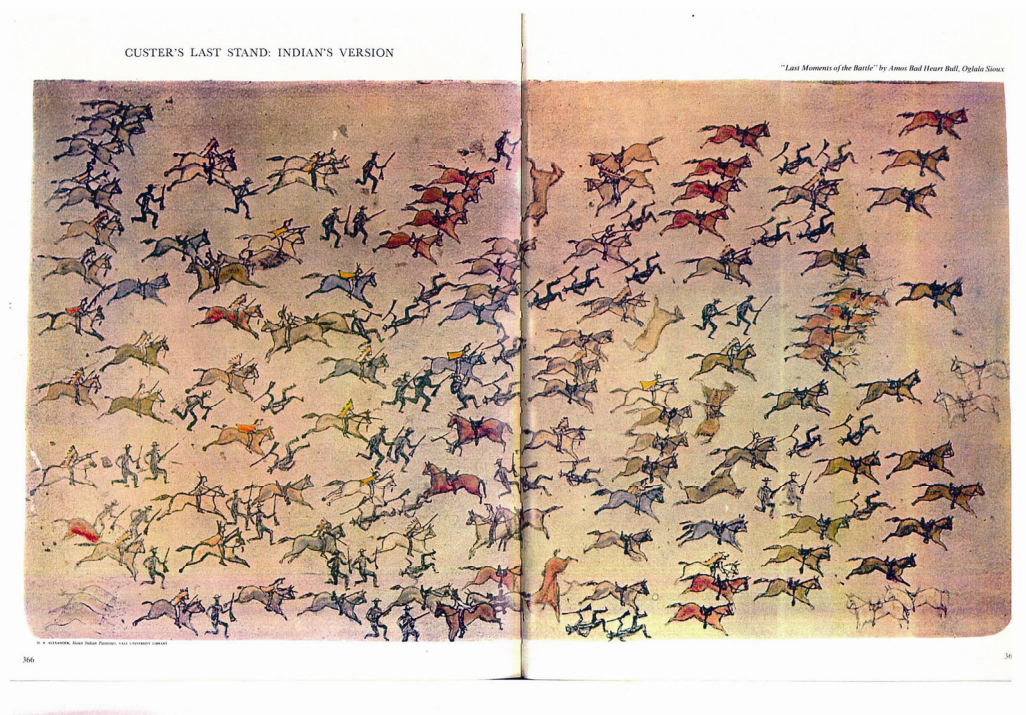 CUSTER'S LAST STAND: INDIAN'S VERSION
"Last Moments of the Battle" by Amos Bad Heart Bull, Oglala Sioux
H. B. ALEXANDER, Sioux Indian Painting, YALE UNIVERSITY LIBRARY
366
36